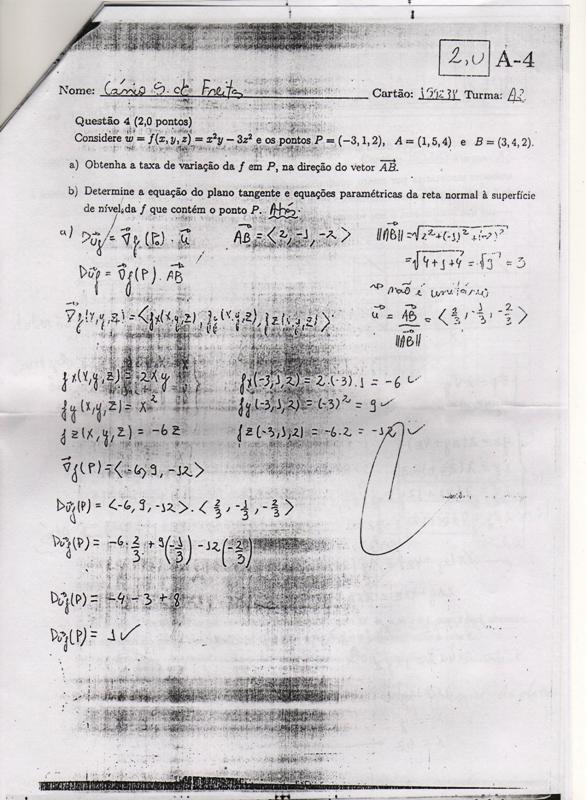 2,0 A-4
Nome: S. de Freitas Cartão: 155231 Turma: A2
Questão 4 (2,0 pontos)
Considere w = f(x, y, z) = x²y − 3z² e os pontos P = (−3, 1, 2), A = (1, 5, 4) e B = (3, 4, 2).
a) Obtenha a taxa de variação da f em P, na direção do vetor AB⃗.
b) Determine a equação do plano tangente e equações paramétricas da reta normal à superfície
de nível da f que contém o ponto P. Atrás.
a) Du⃗f = ∇⃗f(P₀) · u⃗ AB⃗ = <2, -1, -2> ||AB⃗|| = √2²+(-1)²+(-2)²
Du⃗f = ∇⃗f(P) · AB⃗ = √4+1+4 = √9 = 3
não é unitário
∇⃗f(x,y,z) = <fx(x,y,z), fy(x,y,z), fz(x,y,z)> u⃗ = AB⃗/||AB⃗|| = <2/3, -1/3, -2/3>
fx(x,y,z) = 2xy fx(-3,1,2) = 2.(-3).1 = -6 ✓
fy(x,y,z) = x² fy(-3,1,2) = (-3)² = 9 ✓
fz(x,y,z) = -6z fz(-3,1,2) = -6.2 = -12 ✓
∇⃗f(P) = <-6, 9, -12>
Du⃗f(P) = <-6, 9, -12> . <2/3, -1/3, -2/3>
Du⃗f(P) = -6.2/3 + 9(-1/3) -12(-2/3)
Du⃗f(P) = -4 -3 + 8
Du⃗f(P) = 1 ✓